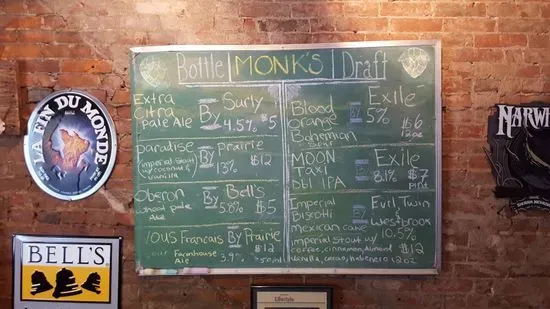 Bottle MONK'S Draft
Extra
Citra
Pale Ale
By
Surly
4.5% $5
Paradise
Imperial Stout
w/ coconut &
vanilla
By
Prairie
13% $12
Oberon
wheat pale
Ale
By
Bell's
5.8% $5
Vous Francais
Farmhouse
Ale
By
Prairie
$12
3.9% 500ml
Blood
Orange
Bohemian
By
Exile
5%
$6
12oz
MOON
Taxi
Dbl IPA
By
Exile
8.1% $7
pint
Imperial
Biscotti
Mexican cake
Imperial Stout w/
coffee, cinnamon, almond
vanilla, cacao, habenero 12oz
By
Evil Twin
Westbrook
10.5%
$12
LA FIN DU MONDE
BELL'S
NARW
SIERRA NEVADA
Lifestyle